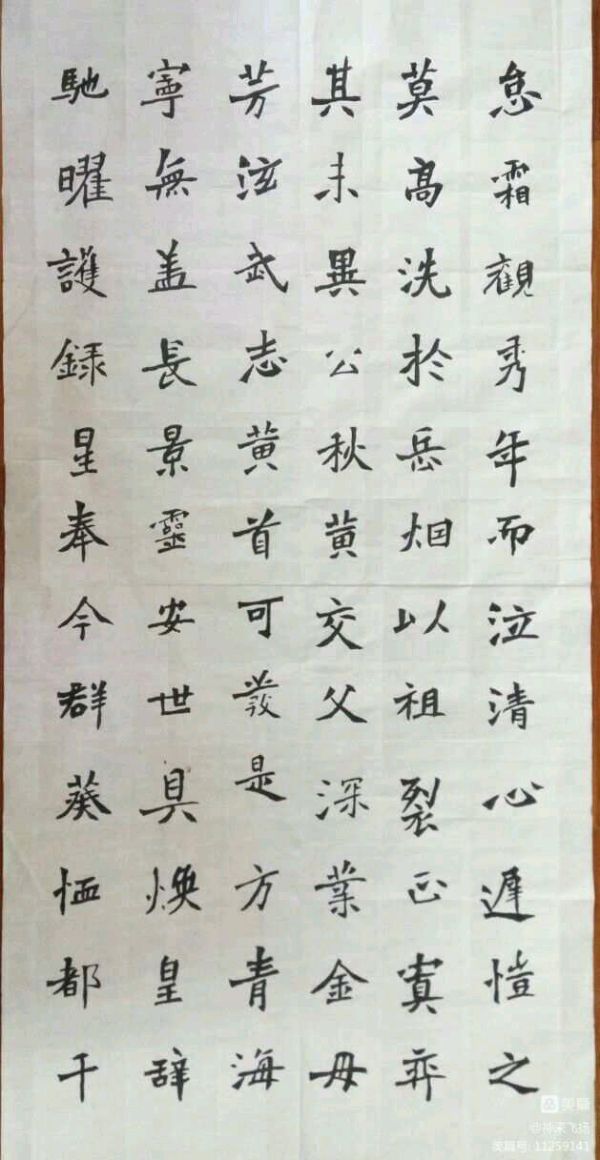 怠霜觀秀年而泣清心遲愷之
莫高洗於岳烟以祖裂正寞弈
其未異公秋黄交父深業金毋
芳泫武志黄首可發是方青海
寧無盖長景靈安世具煥皇辞
馳曜護録星奉今群葵恤都千
美篇
@神来飞扬
美篇号: 11259141